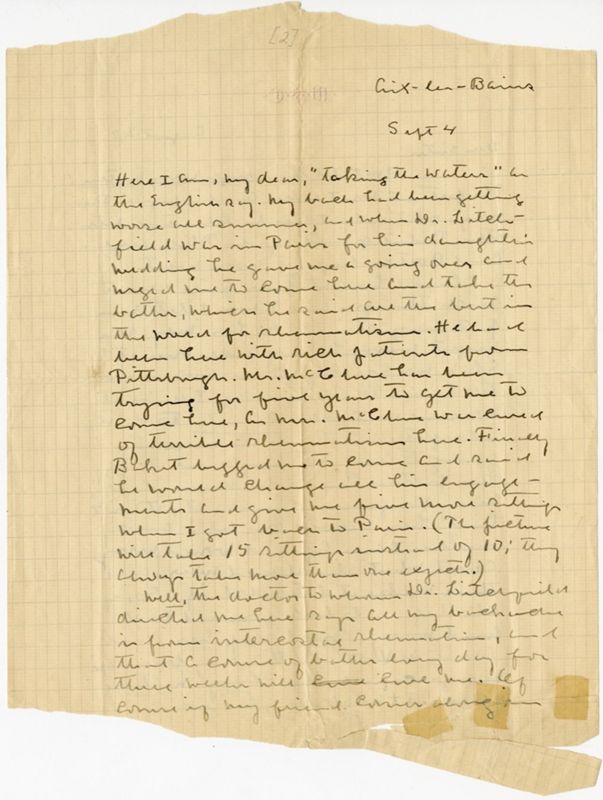 [2]
Aix-les-Bains
Sept 4
Here I am, my dear, "taking the waters" as
the English say. My back had been getting
worse all summer, and when Dr. Litch-
field was in Paris for his daughter's
wedding he gave me a going over and
urged me to come here and take the
baths, which he said are the best in
the world for rheumatism. He had
been here with rich patients from
Pittsburgh. Mr. McClure has been
trying for five years to get me to
come here, as Mrs. McClure was cured
of terrible rheumatism here. Finally
Bakst begged me to come and said
he would change all his engage-
ments and give me five more sittings
when I got back to Paris. (The picture
will take 15 sittings instead of 10; they
always take more than one expects.)
Well, the doctor to whom Dr. Litchfield
directed me here says all my backache
is from intercostal rheumatism, and
that a course of baths every day for
three weeks will cure me. Of
course if my friend comes along in